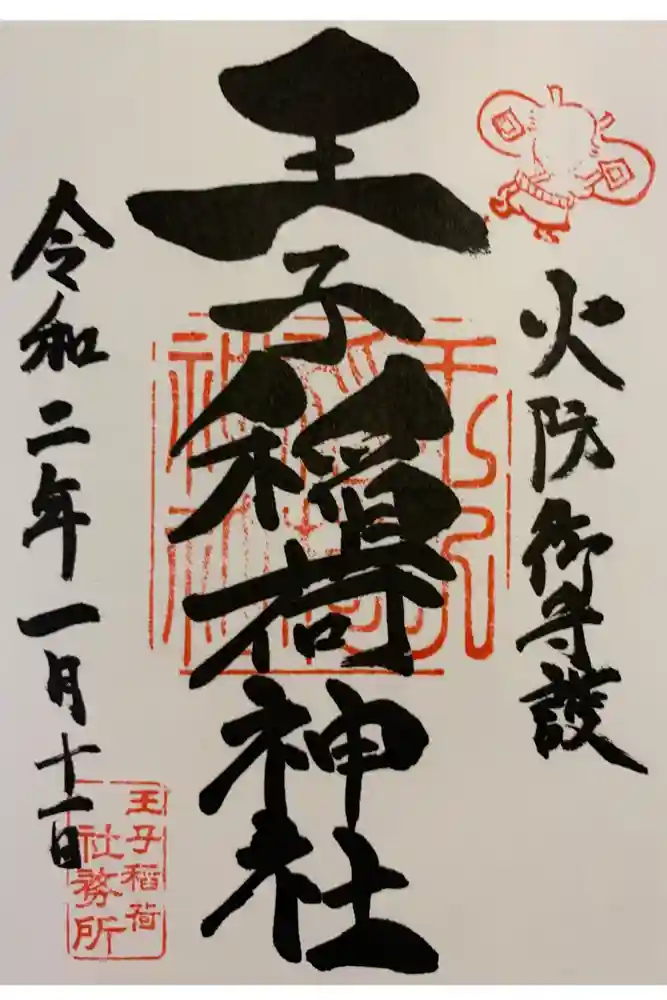 火防御守護
王子稲荷神社
令和二年一月十一日
王子稲荷
社務所